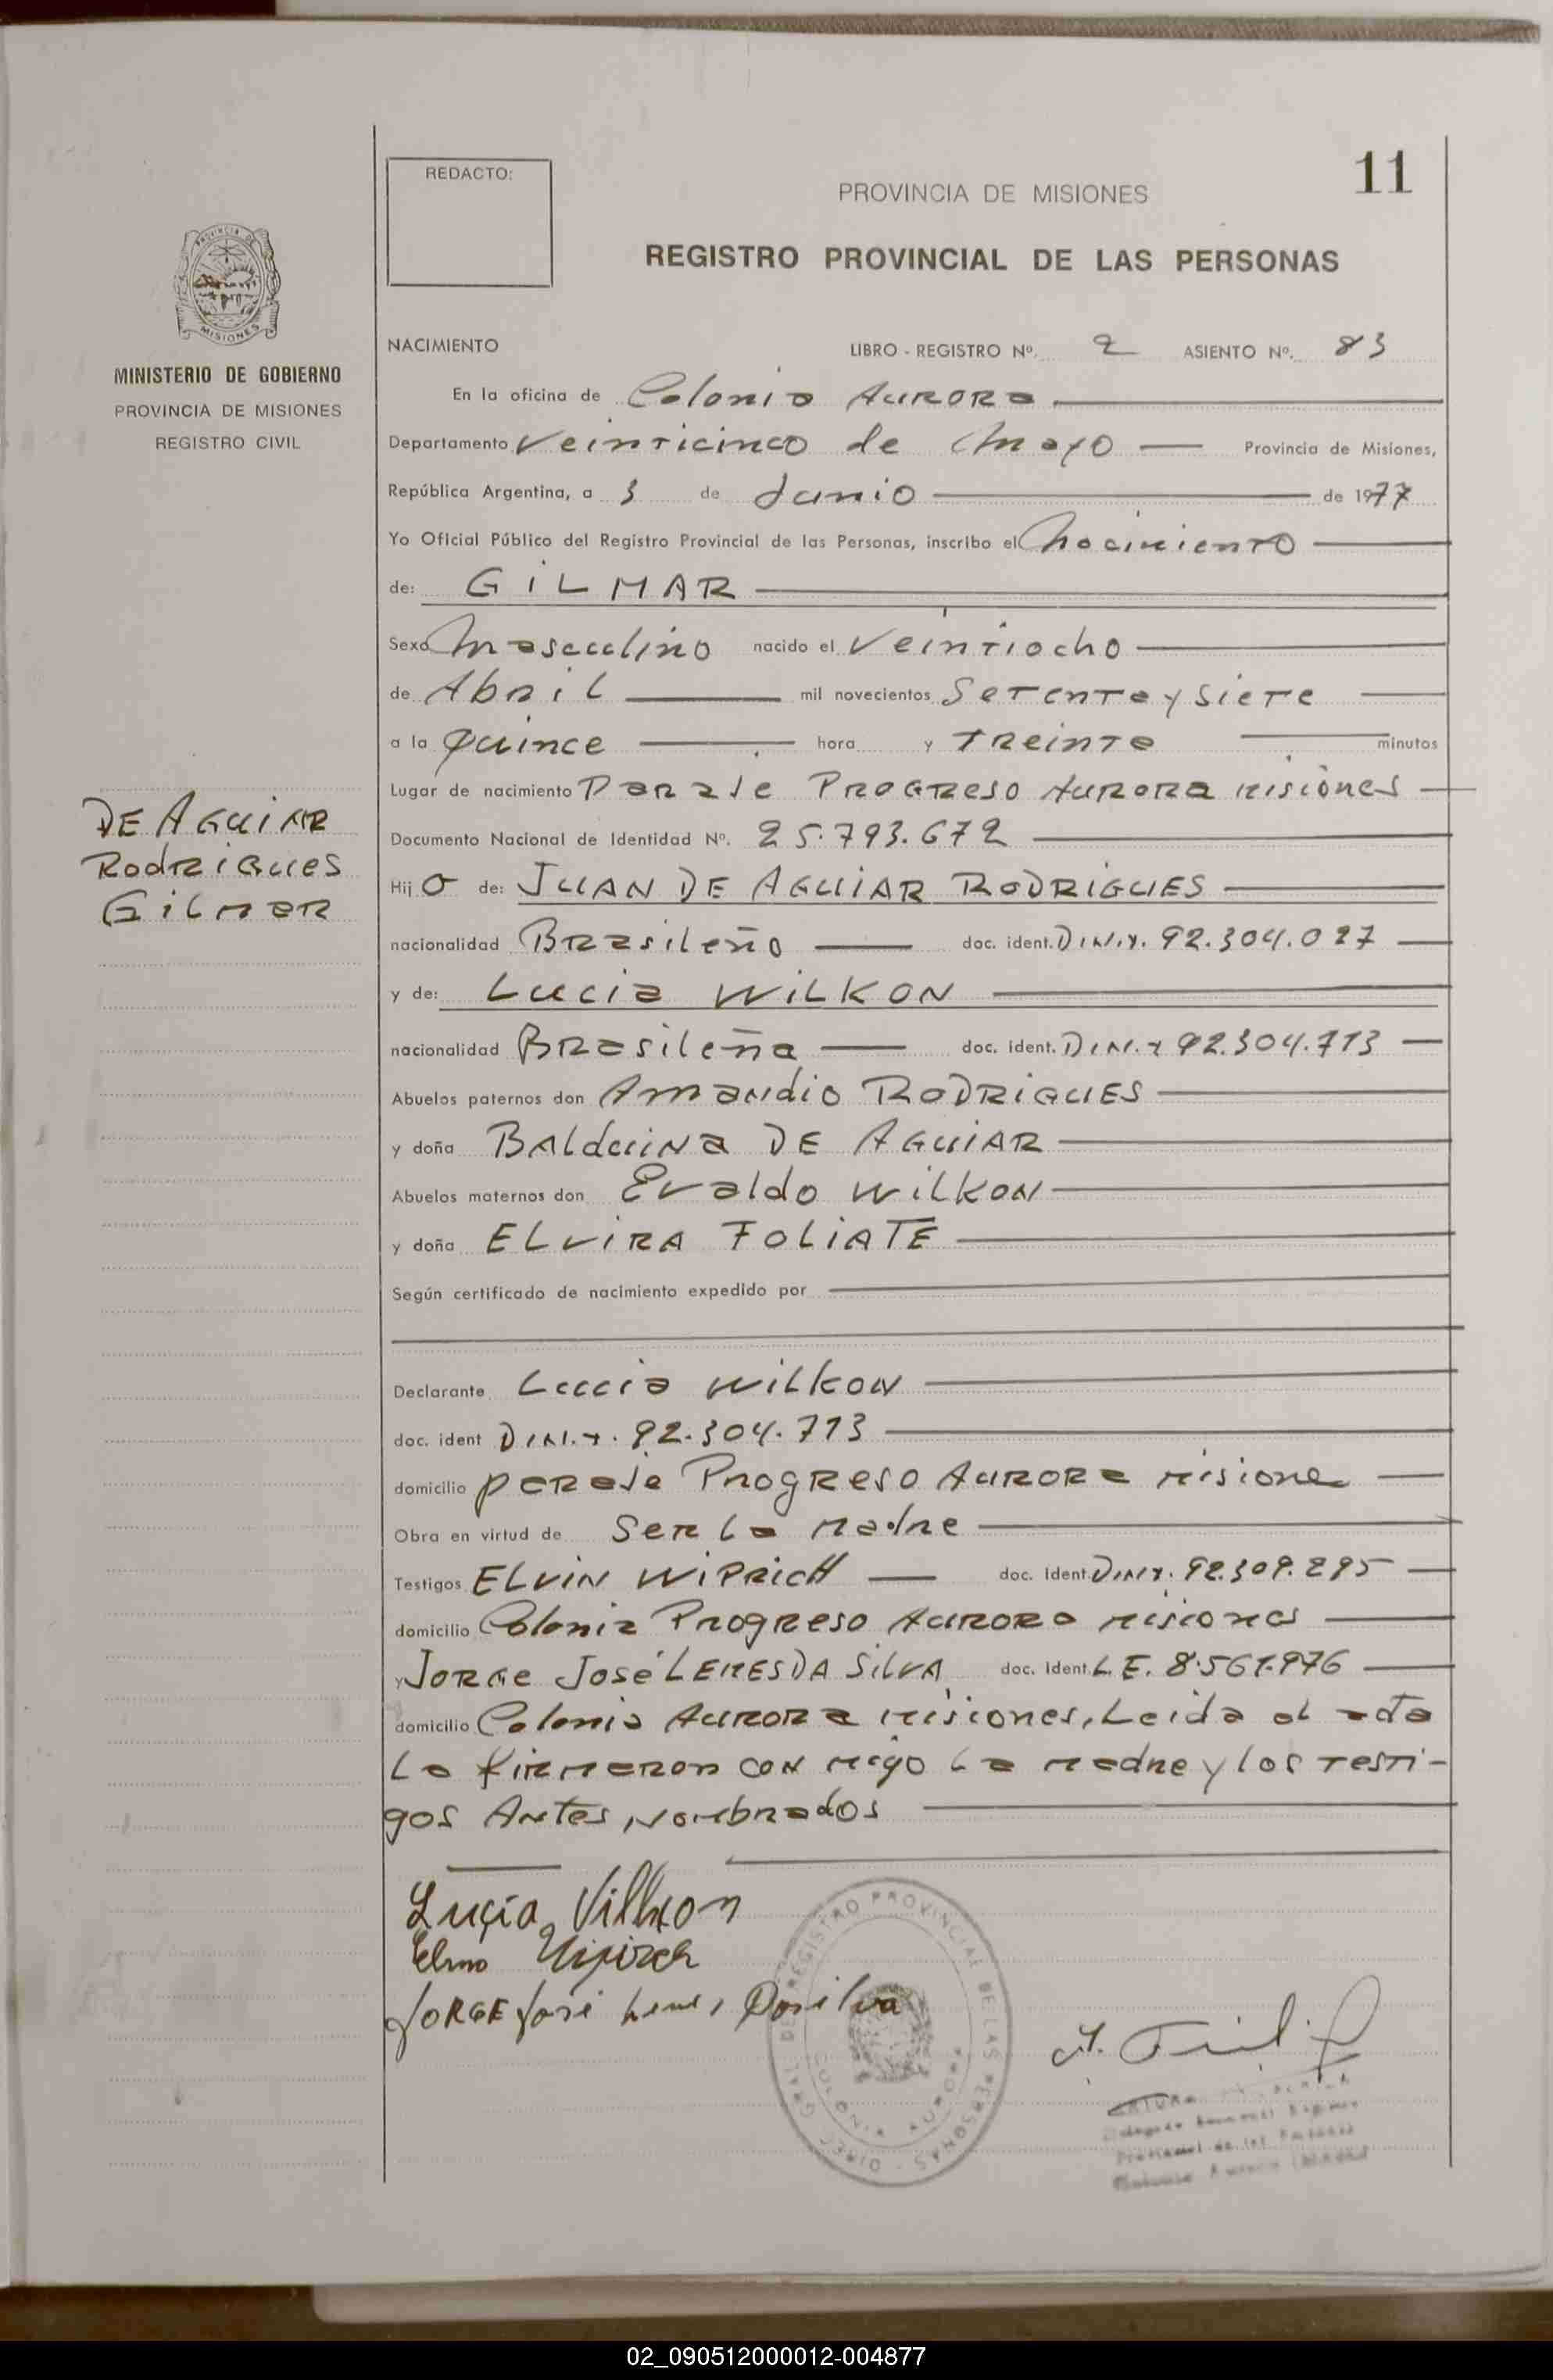 11
REDACTO:
PROVINCIA DE MISIONES
REGISTRO PROVINCIAL DE LAS PERSONAS
PROVINCIA DE
MISIONES
MINISTERIO DE GOBIERNO
PROVINCIA DE MISIONES
REGISTRO CIVIL
NACIMIENTO LIBRO - REGISTRO Nº. 2 ASIENTO Nº. 83
En la oficina de Colonia Aurora
Departamento Veinticinco de Mayo Provincia de Misiones,
República Argentina, a 3 de Junio de 1977
Yo Oficial Público del Registro Provincial de las Personas, inscribo el Nacimiento
de: GILMAR
Sexo Masculino nacido el Veintiocho
de Abril mil novecientos Setenta y Siete
a la Quince hora y Treinta minutos
Lugar de nacimiento Paraje Progreso Aurora Misiones
DE AGUIAR
Rodrigues
Gilmar
Documento Nacional de Identidad Nº. 25.793.672
Hij o de: JUAN DE AGUIAR RODRIGUES
nacionalidad Brasileño doc. ident. D.N.I. 92.304.027
y de: Lucia WILKON
nacionalidad Brasileña doc. ident. D.N.I. 92.304.713
Abuelos paternos don Amandio RODRIGUES
y doña BALduiNa DE AGUIAR
Abuelos maternos don Evaldo WILKON
y doña ELVIRA FOLIATE
Según certificado de nacimiento expedido por
Declarante Lucia Wilkon
doc. ident D.N.I. 92.304.713
domicilio paraje Progreso Aurora Misione
Obra en virtud de Ser la Madre
Testigos ELVIN WIPRICH doc. Ident. D.N.I. 92.309.295
domicilio Colonia Progreso Aurora Misiones
y Jorge José LEMES DA SILVA doc. Ident. L.E. 8.561.976
domicilio Colonia Aurora Misiones, Leida el acta
la firmaron con migo la Madre y los testi-
gos Antes Nombrados
Luçia Vilkon
JORGE José Lemes Dasilva
DIREC. GRAL. DEL REGISTRO PROVINCIAL DE LAS PERSONAS
COLONIA AURORA
02_090512000012-004877